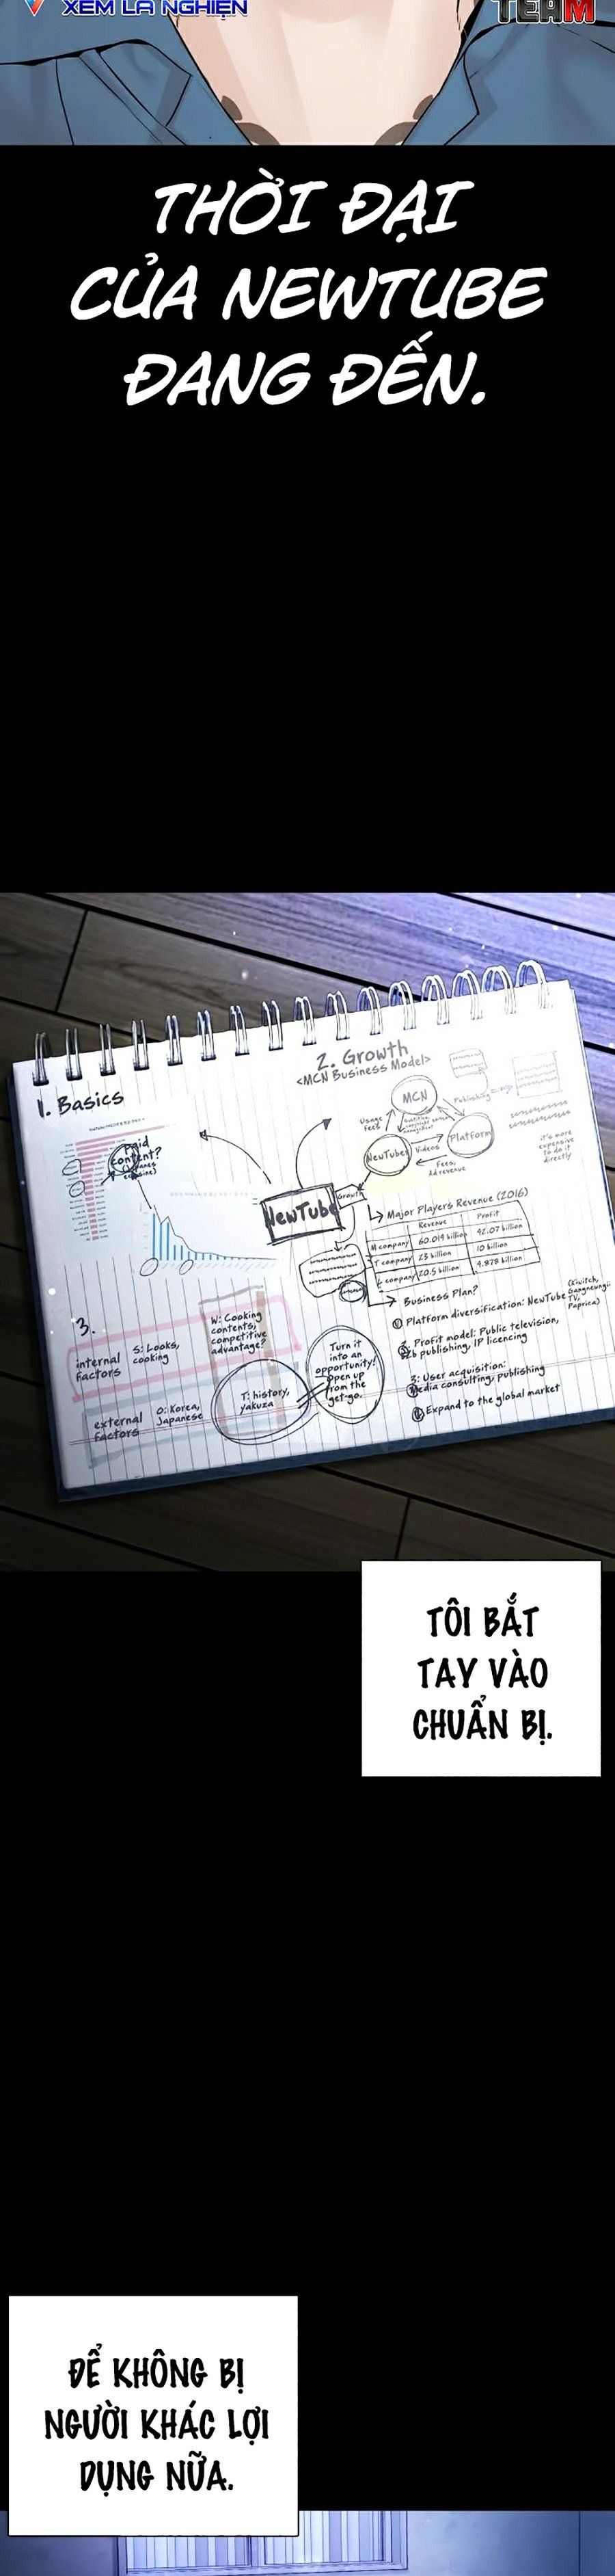 XEM LÀ NGHIỆN
TEAM
THỜI ĐẠI
CỦA NEWTUBE
ĐANG ĐẾN.
1. Basics
2. Growth
<MCN Business Model>
MCN
Publishing
Usage
Fees
NewTube
Videos
Platform
Fees,
Ad revenue
it's more
expensive
to do it
directly
paid
content?
NewTube
Growth
Major Players Revenue (2016)
Revenue
Profit
M company 60.019 billion 42.07 billion
T company 23 billion 10 billion
L company 20.5 billion 4.878 billion
Business Plan?
Platform diversification: NewTube
TV,
Paprica)
2. Profit model: Public television,
publishing, IP licencing
3: User acquisition:
Media consulting, publishing
Expand to the global market
3.
internal
factors
S: Looks,
cooking
W: Cooking
contents,
competitive
advantage?
Turn it
into an
opportunity!
open up
from the
get-go.
external
factors
O: Korea,
Japanese
T: history,
yakuza
TÔI BẮT
TAY VÀO
CHUẨN BỊ.
ĐỂ KHÔNG BỊ
NGƯỜI KHÁC LỢI
DỤNG NỮA.